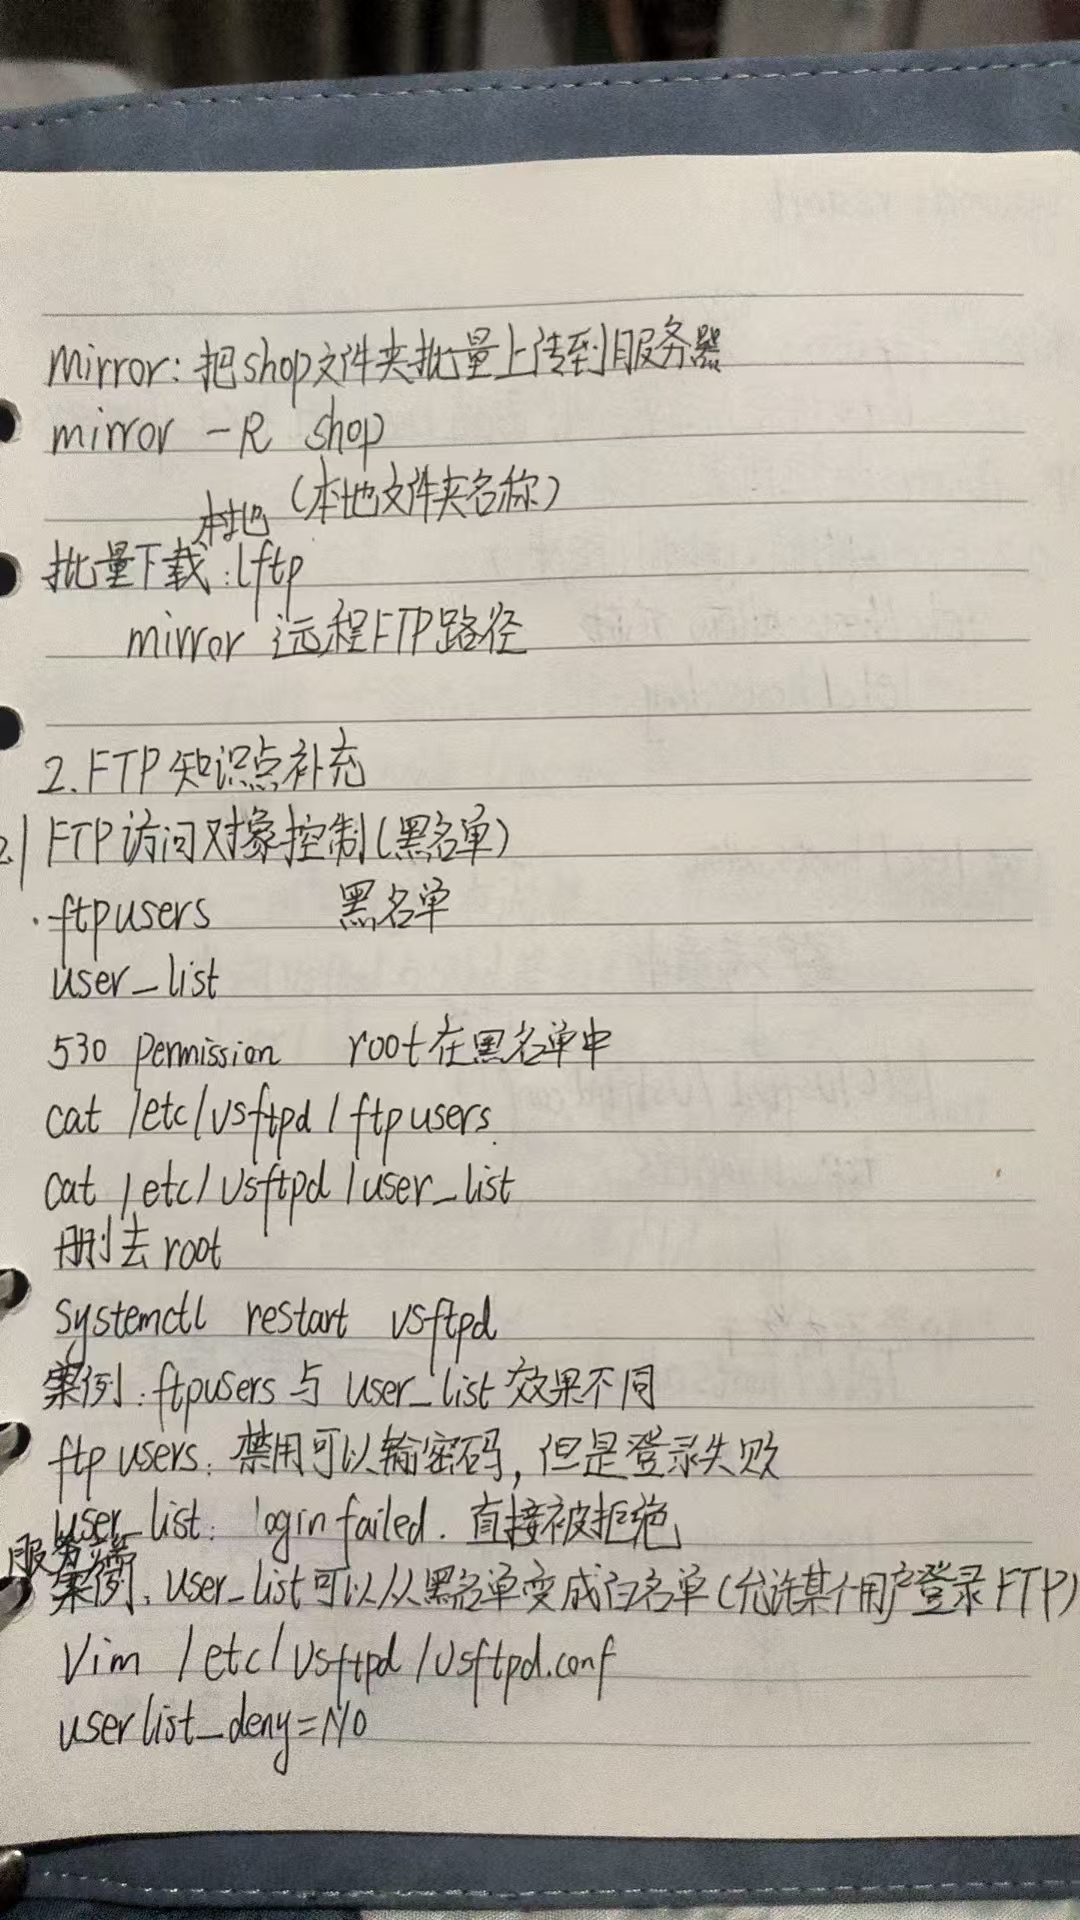 mirror: 把shop文件夹批量上传到服务器
mirror -R shop
(本地文件夹名称)
本地
批量下载:lftp
mirror 远程FTP路径
2.FTP知识点补充
2.1 FTP访问对象控制(黑名单)
·ftpusers 黑名单
user_list
530 permission root在黑名单中
cat /etc/vsftpd/ftpusers
cat /etc/vsftpd/user_list
删去root
systemctl restart vsftpd
案例:ftpusers与user_list效果不同
ftpusers:禁用可以输密码,但是登录失败
user_list: login failed.直接被拒绝
服务端
案例.user_list可以从黑名单变成白名单(允许某个用户登录FTP)
Vim /etc/vsftpd/vsftpd.conf
userlist_deny=NO